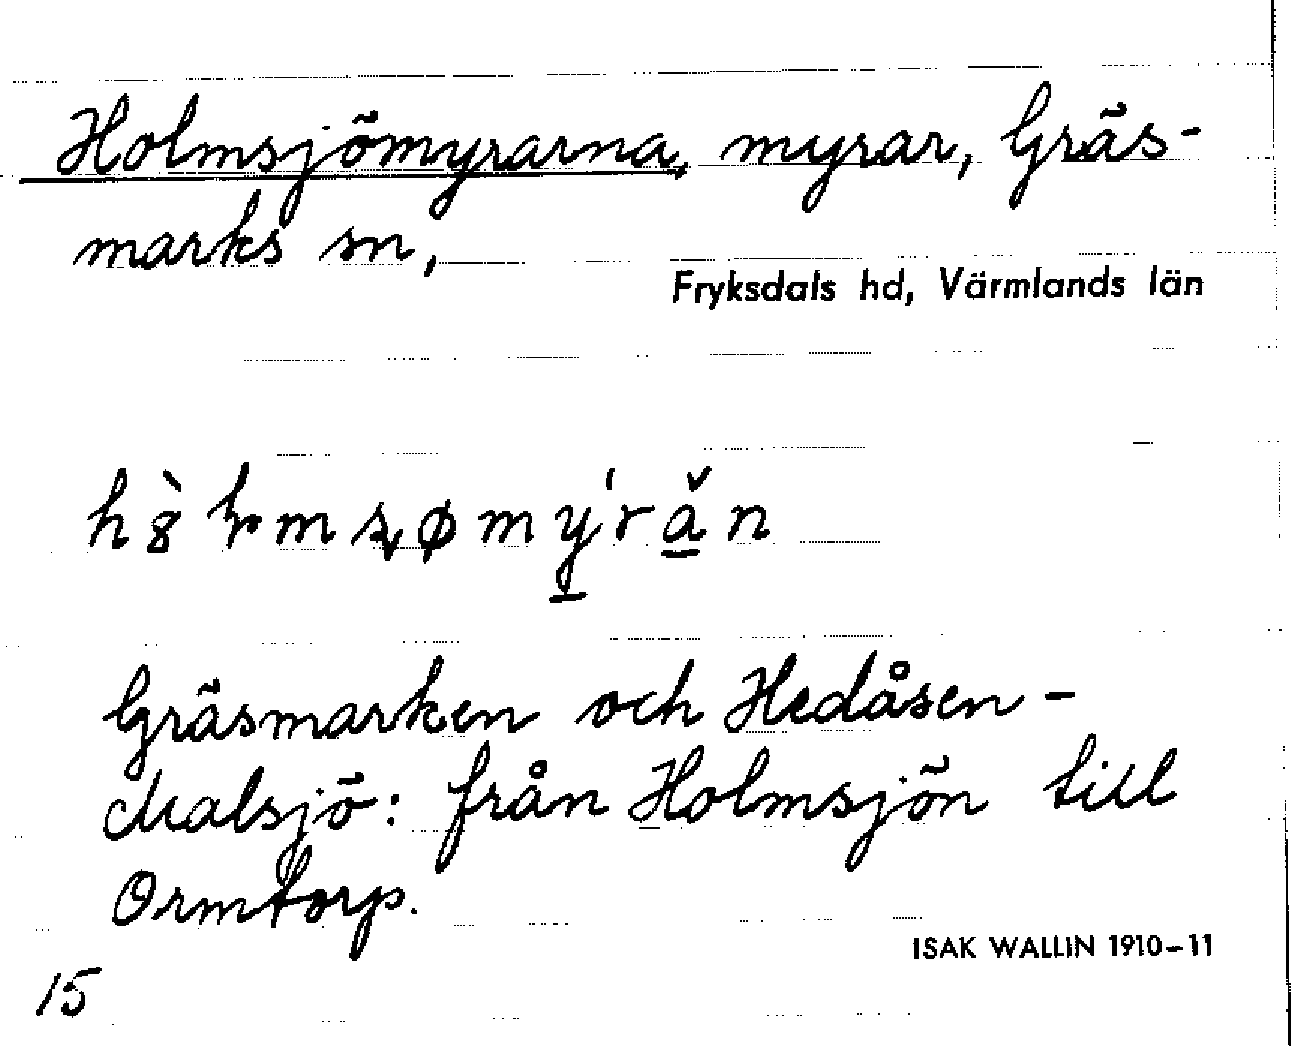 Holmsjömyrarna, myrar, Gräs-
marks sn,
Fryksdals hd, Värmlands län
Gräsmarken och Hedåsen -
Malsjö: från Holmsjön till
Ormtorp.
ISAK WALLIN 1910-11
15